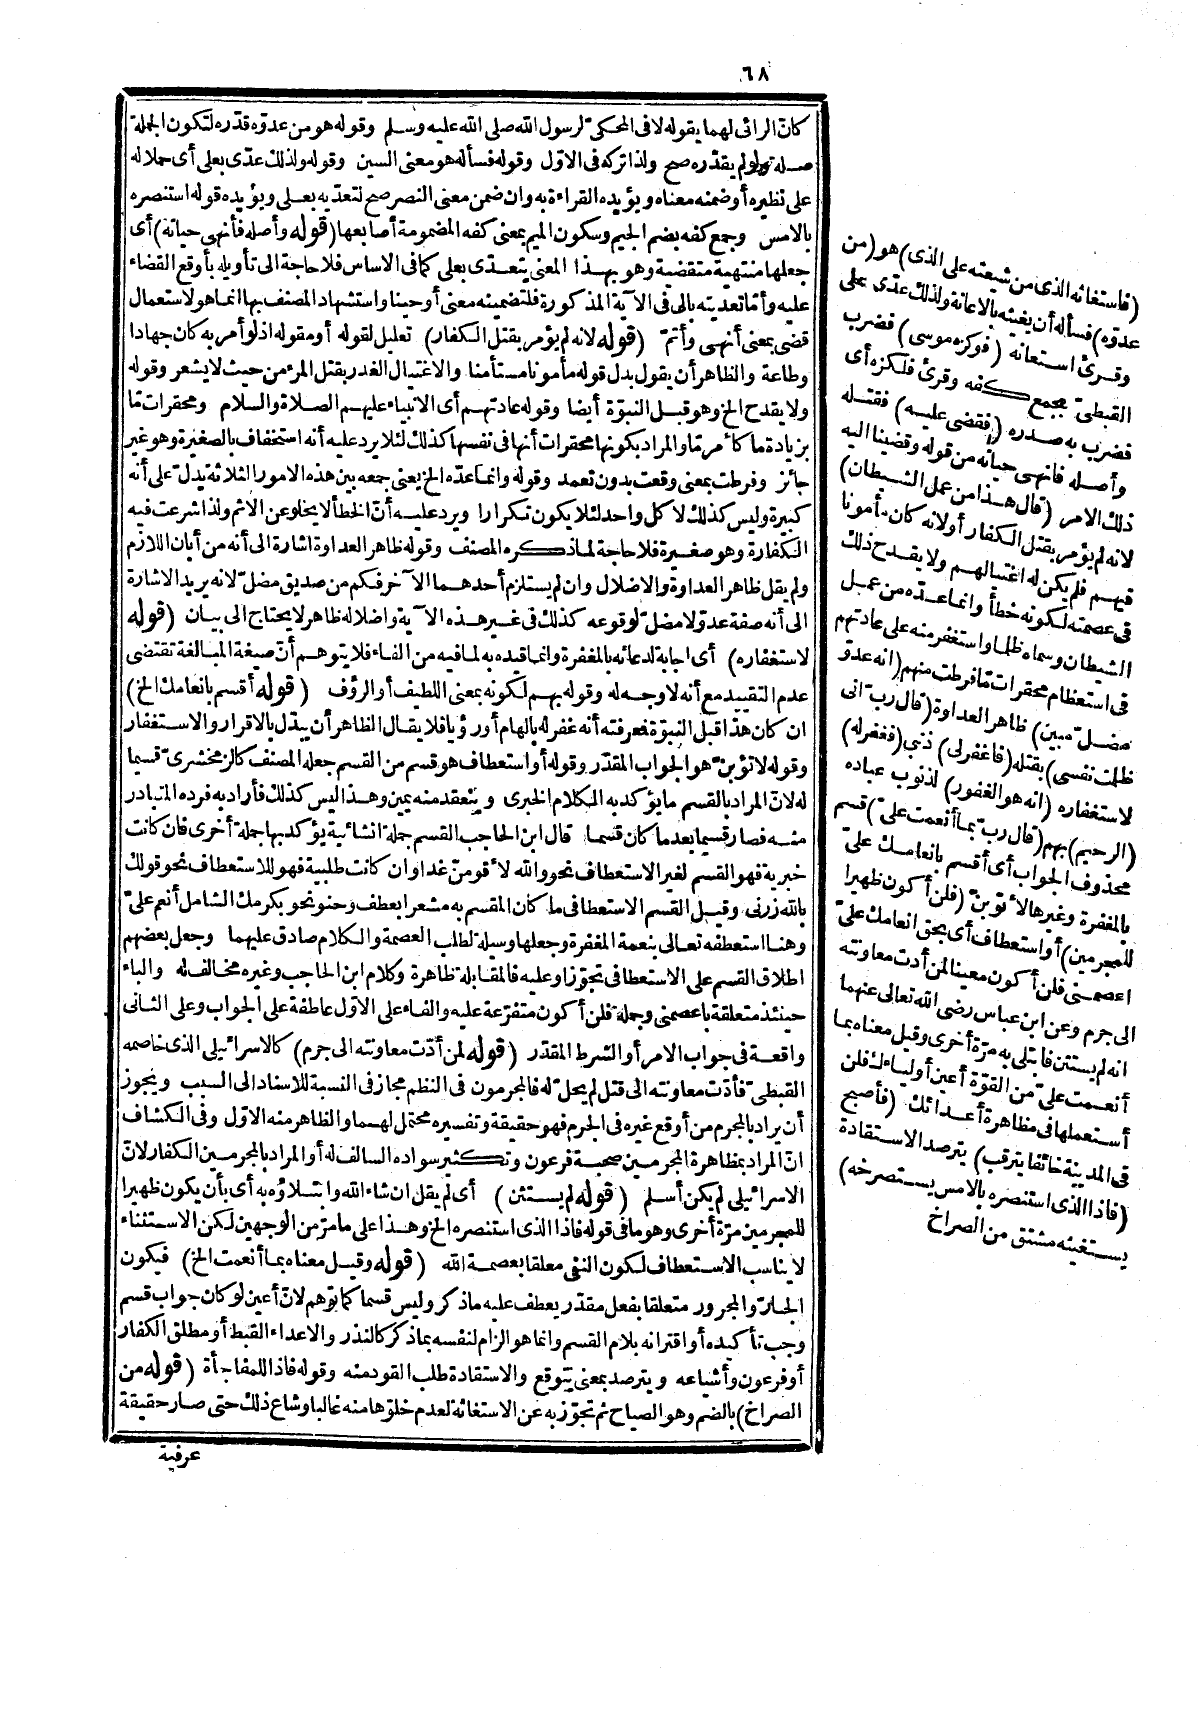 ٦٨
كان الرائى لهما يقوله لا فى المحكىّ لرسول الله صلى الله عليه وسلم وقوله هو من عدوّه قدّره لتكون الجملة
صلة ولو لم يقدّره صح ولذا تركه فى الاوّل وقوله فسأله هو معنى السين وقوله ولذلك عدّى بعلى أى حملا له
على نظيره أو ضمنه معناه ويؤيده القراءة به وان ضمن معنى النصر صح لتعديه بعلى ويؤيده قوله استنصره
بالامس وجمع كفه بضم الجيم وسكون الميم بمعنى كفه المضمومة أصابعها (قوله وأصله فأنهى حياته) أى
جعلها منتهية متقضية وهو بهذا المعنى يتعدّى بعلى كما فى الاساس فلا حاجة الى تأويله بأوقع القضاء
عليه وأمّا تعديته بالى فى الآية المذكورة فلتضمينه معنى أوحينا واستشهاد المصنف بها انما هو لاستعمال
قضى بمعنى أنهى وأتمّ (قوله لانه لم يؤمر بقتل الكفار) تعليل لقوله أو مقوله اذ لو أمر به كان جهادا
وطاعة والظاهر أن يقول بدل قوله مأمونا مستأمنا والاغتيال الغدر بقتل المرء من حيث لا يشعر وقوله
ولا يقدح الخ وهو قبل النبوّة أيضا وقوله عادتهم أى الانبياء عليهم الصلاة والسلام ومحقرات مّا
بزيادة ما كما مرّ مّا والمراد بكونها محقرات أنها فى نفسها كذلك لئلا يرد عليه أنه استخفاف بالصغيرة وهو غير
جائز وفرطت بمعنى وقعت بدون تعمد وقوله وانما عدّه الخ يعنى جمعه بين هذه الامور الثلاثة يدلّ على أنه
كبيرة وليس كذلك لا كل واحد لئلا يكون تكرارا ويرد عليه أنّ الخطأ لا يخلو عن الاثم ولذا شرعت فيه
الكفارة وهو صغيرة فلا حاجة لما ذكره المصنف وقوله ظاهر العداوة اشارة الى أنه من أبان اللازم
ولم يقل ظاهر العداوة والاضلال وان لم يستلزم أحدهما الآخر فكم من صديق مضلّ لانه يريد الاشارة
الى أنه صفة عدوّ لا مضلّ لوقوعه كذلك فى غير هذه الآية واضلاله ظاهر لا يحتاج الى بيان (قوله
لاستغفاره) أى اجابة لدعائه بالمغفرة وانما قيده به لما فيه من الفاء فلا يتوهم أنّ صيغة المبالغة تقتضى
عدم التقييد مع أنه لا وجه له وقوله بهم لكونه بمعنى اللطيف أو الرؤف (قوله أقسم بانعامك الخ)
ان كان هذا قبل النبوّة فمعرفته أنه غفر له بالهام أو رؤيا فلا يقال الظاهر أن يبدّل بالاقرار والاستغفار
وقوله لاتوبنّ هو الجواب المقدّر وقوله أو استعطاف هو قسم من القسم جعله المصنف كالزمخشرىّ قسيما
له لانّ المراد بالقسم ما يؤكد به الكلام الخبرى وينعقد منه يمين وهذا ليس كذلك فأراد به فرده المتبادر
منه فصار قسيما بعد ما كان قسما قال ابن الحاجب القسم جملة انشائية يؤكد بها جملة أخرى فان كانت
خبرية فهو القسم لغير الاستعطاف نحو والله لأقومنّ غدا وان كانت طلبية فهو للاستعطاف نحو قولك
بالله زرنى وقيل القسم الاستعطافى ما كان المقسم به مشعرا بعطف وحنو نحو بكرمك الشامل أنعم علىّ
وهنا استعطفه تعالى بنعمة المغفرة وجعلها وسيلة لطلب العصمة والكلام صادق عليهما وجعل بعضهم
اطلاق القسم على الاستعطافى تجوّزا وعليه فالمقابلة ظاهرة وكلام ابن الحاجب وغيره مخالف له والباء
حينئذ متعلقة باعصمنى وجملة فلن أكون متفرّعة عليه والفاء على الاوّل عاطفة على الجواب وعلى الثانى
واقعة فى جواب الامر أو الشرط المقدّر (قوله لمن أدّت معاونته الى جرم) كالاسرائيلى الذى خاصمه
القبطىّ فأدّت معاونته الى قتل لم يحلّ له فالمجرمون فى النظم مجاز فى النسبة للاسناد الى السبب ويجوز
أن يراد بالمجرم من أوقع غيره فى الجرم فهو حقيقة وتفسيره محتمل لهما والظاهر منه الاوّل وفى الكشاف
انّ المراد بمظاهرة المجرمين صحبة فرعون وتكثير سواده السالف له أو المراد بالمجرمين الكفار لانّ
الاسرائيلى لم يكن أسلم (قوله لم يستثن) أى لم يقل ان شاء الله وابتلاؤه به أى بأن يكون ظهيرا
للمجرمين مرّة أخرى وهو ما فى قوله فاذا الذى استنصره الخ وهذا على ما مرّ من الوجهين لكن الاستثناء
لا يناسب الاستعطاف لكون النفى معلقا بعصمة الله (قوله وقيل معناه بما أنعمت الخ) فيكون
الجارّ والمجرور متعلقا بفعل مقدّر يعطف عليه ما ذكر وليس قسما كما توهم لانّ أعين لو كان جواب قسم
وجب تأكيده أو اقترانه بلام القسم وانما هو الزام لنفسه بما ذكر كالنذر والاعداء القبط أو مطلق الكفار
أو فرعون وأشياعه ويترصد بمعنى يتوقع والاستقادة طلب القود منه وقوله فاذا للمفاجأة (قوله من
الصراخ) بالضم وهو الصياح ثم تجوّز به عن الاستغاثة لعدم خلوّها منه غالبا وشاع ذلك حتى صار حقيقة
عرفية
(فاستغاثه الذى من شيعته على الذى) هو (من
عدوّه) فسأله أن يغيثه بالاعانة ولذلك عدّى على
وقرئ استعانه (فوكزه موسى) فضرب
القبطىّ بجمع كفه وقرئ فلكزه أى
فضرب به صدره (فقضى عليه) فقتله
وأصله فأنهى حياته من قوله وقضينا اليه
ذلك الامر (قال هذا من عمل الشيطان)
لانه لم يؤمر بقتل الكفار أو لانه كان مأمونا
فيهم فلم يكن له اغتيالهم ولا يقدح ذلك
فى عصمته لكونه خطأ وانما عدّه من عمل
الشيطان وسماه ظلما واستغفر منه على عادتهم
فى استعظام محقرات مّا فرطت منهم (انه عدوّ
مضلّ مبين) ظاهر العداوة (قال ربّ انى
ظلمت نفسى) بقتله (فاغفر لى) ذنبى (فغفر له)
لاستغفاره (انه هو الغفور) لذنوب عباده
(الرحيم) بهم (قال ربّ بما أنعمت علىّ) قسم
محذوف الجواب أى أقسم بانعامك علىّ
بالمغفرة وغيرها لأتوبنّ (فلن أكون ظهيرا
للمجرمين) أو استعطاف أى بحق انعامك علىّ
اعصمنى فلن أكون معينا لمن أدت معاونته
الى جرم وعن ابن عباس رضى الله تعالى عنهما
انه لم يستثن فابتلى به مرّة أخرى وقيل معناه بما
أنعمت علىّ من القوّة أعين أولياءك فلن
أستعملها فى مظاهرة أعدائك (فأصبح
فى المدينة خائفا يترقب) يترصد الاستقادة
(فاذا الذى استنصره بالامس يستصرخه)
يستغيثه مشتق من الصراخ